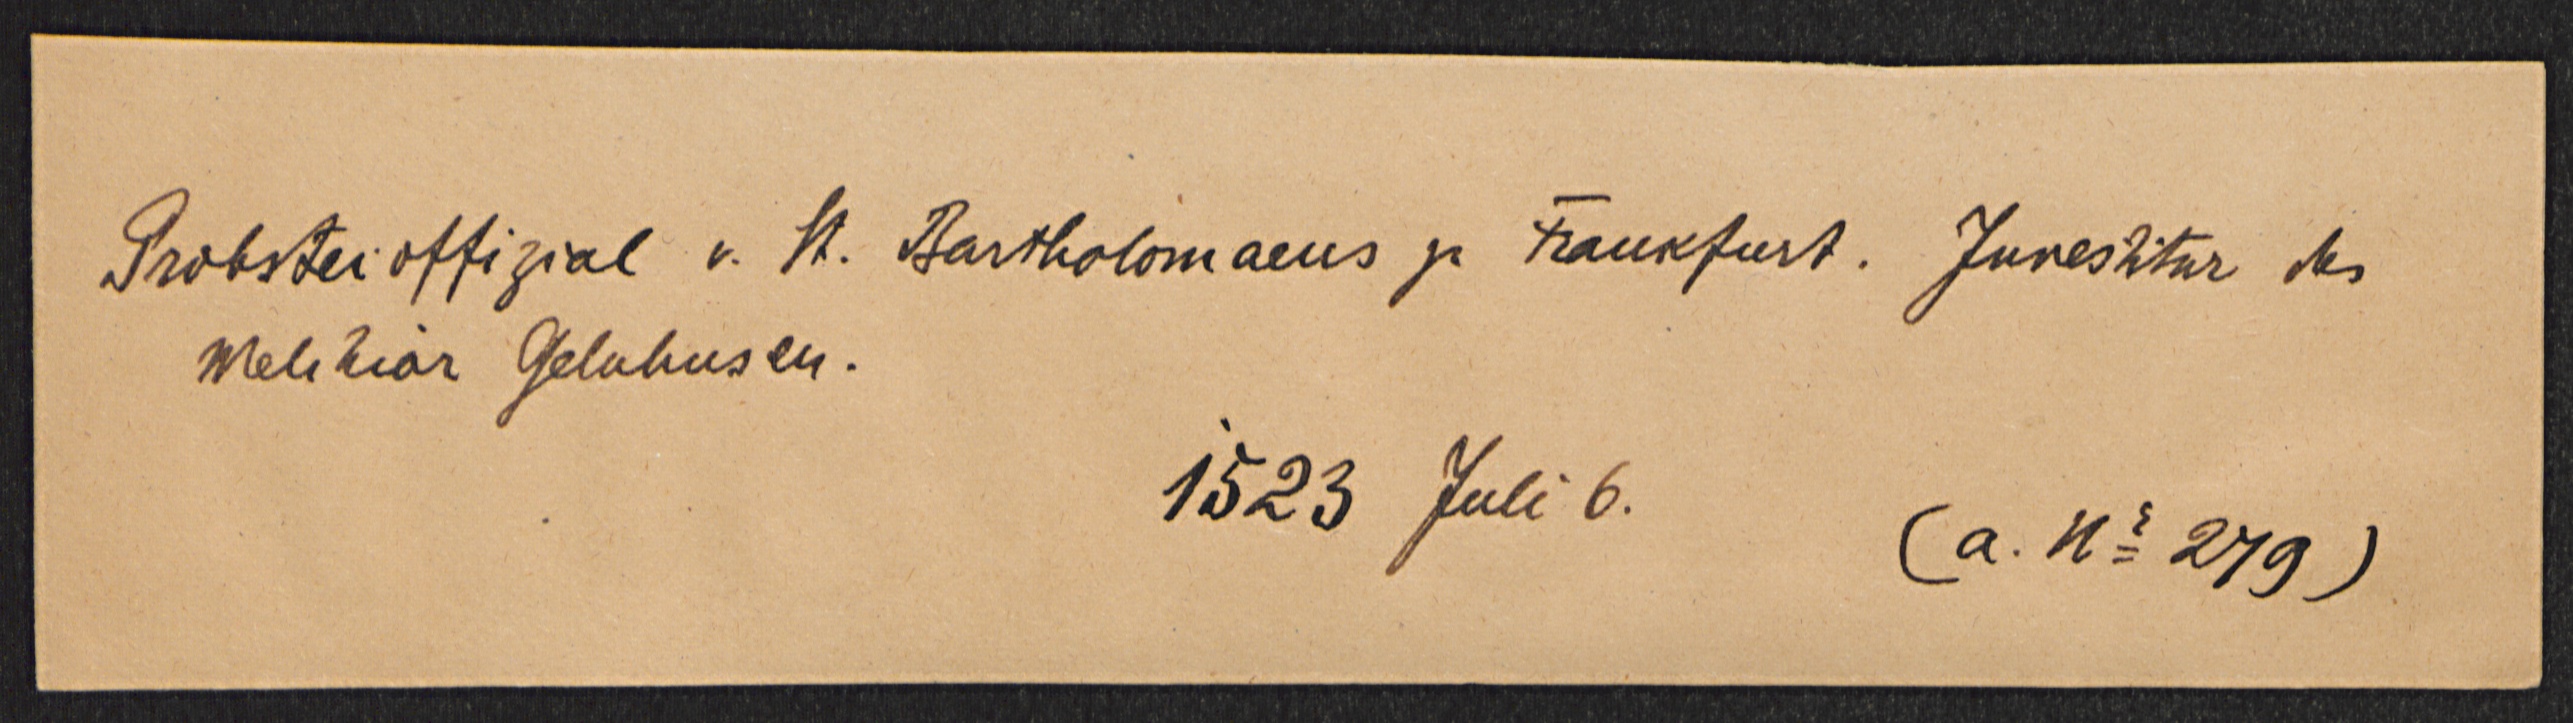 Probsteioffizial v. St. Bartholomaeus zu Frankfurt. Investitur des
Melchior Gelnhusen.
1523 Juli 6.
(a. Nr 279)